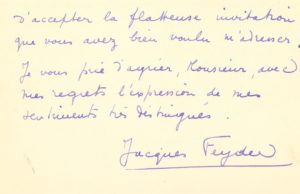 d'accepter la flatteuse invitation
que vous avez bien voulu m'adresser.
Je vous prie d'agréer, Monsieur, avec
mes regrets l'expression de mes
sentiments très distingués.
Jacques Feyder